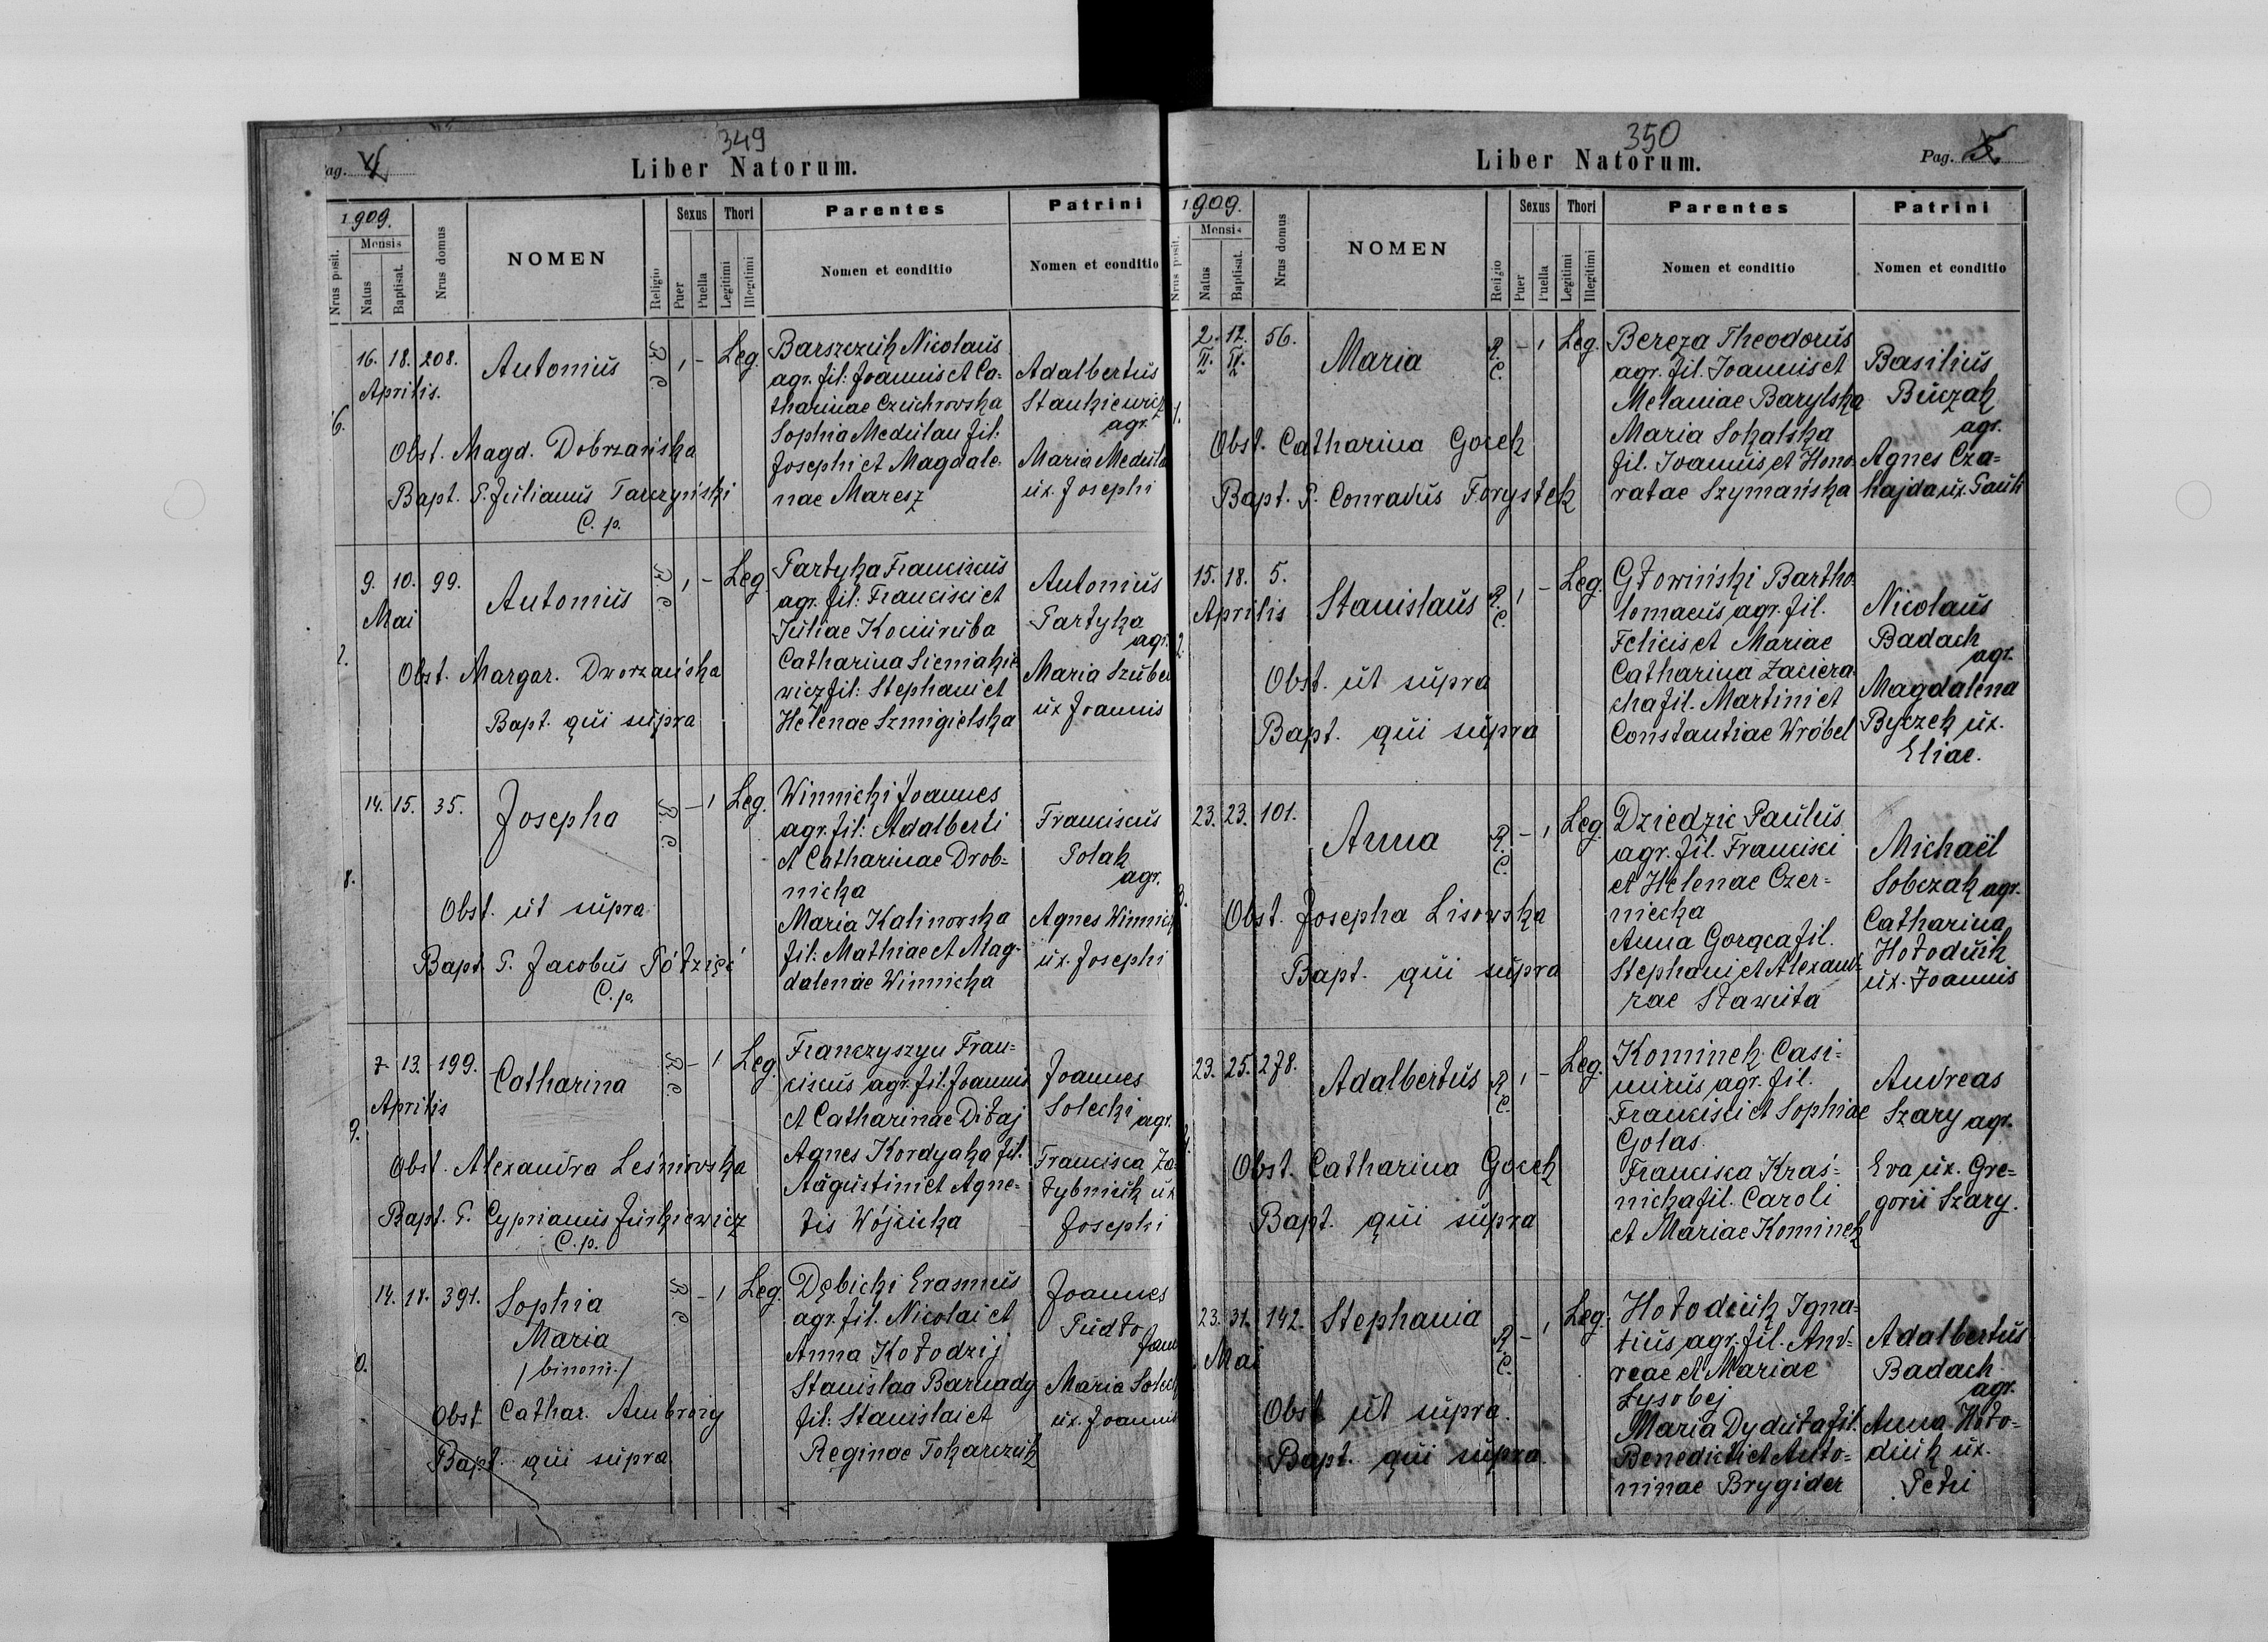 349
Pag. VI
Liber Natorum.
1909.
Nrus posit.
Mensis
Natus
Baptisat.
Nrus domus
NOMEN
Religio
Sexus
Puer
Puella
Thori
Legitimi
Illegitimi
Parentes
Nomen et conditio
Patrini
Nomen et conditio
6.
16. 18. 208.
Aprilis.
Antonius
R. C.
1 -
Leg.
Obst. Magd. Dobrzańska
Bapt. P. Julianus Tarczyński
C. p.
Barszczuk Nicolaus
agr. fil: Joannis et Ca=
tharinae Czuchrowska
Sophia Medulan fil:
Josephi et Magdale-
nae Maresz
Adalbertus
Stankiewicz
agr.
Maria Medula
ux. Josephi
9. 10. 99.
Mai
Antonius
R. C.
1 -
Leg.
Obst. Margar. Dworzańska
Bapt. qui supra
Partyka Franciscus
agr. fil: Francisci et
Juliae Kociuruba
Catharina Siemakie
wicz fil: Stephani et
Helenae Szmigielska
Antonius
Partyka
agr.
Maria Szuber
ux Joannis
8.
14. 15. 35.
Josepha
R. C.
- 1
Leg.
Obst. ut supra
Bapt. P. Jacobus Półzięć
C. p.
Winnicki Joannes
agr. fil: Adalberti
et Catharinae Drob=
nicka
Maria Kalinowska
fil: Mathiae et Mag-
dalenae Winnicka
Franciscus
Polak
agr.
Agnes Winnick
ux. Josephi
9.
7. 13. 199.
Aprilis
Catharina
R. C.
- 1
Leg.
Obst. Alexandra Leśniowska
Bapt. P. Cyprianus Jurkiewicz
C. p.
Franczyszyn Fran=
ciscus agr. fil. Joannis
et Catharinae Diłaj
Agnes Kordyaka fil.
Augustini et Agne=
tis Wójcicka
Joannes
Solecki
agr.
Francisca Za-
łybniuk ux
Josephi
0.
14. 18. 391.
Sophia
Maria
/binom./
R. C.
- 1
Leg.
Obst. Cathar. Ambroży
Bapt. qui supra
Dębicki Erasmus
agr. fil. Nicolai et
Anna Kołodzij
Stanislaa Barnady
fil: Stanislai et
Reginae Tokarczuk
Joannes
Pudło
Maria Soleck
ux. Joannis
350
Pag. X
Liber Natorum.
1909.
Nrus posit.
Mensis
Natus
Baptisat.
Nrus domus
NOMEN
Religio
Sexus
Puer
Puella
Thori
Legitimi
Illegitimi
Parentes
Nomen et conditio
Patrini
Nomen et conditio
1.
2. 12. 56.
II. II.
Maria
R. C.
- 1
Leg.
Obst. Catharina Gocek
Bapt. P. Conradus Forystek
Bereza Theodorus
agr. fil. Joannis et
Melaniae Barylska
Maria Sokalska
fil. Joannis et Hono-
ratae Szymańska
Basilius
Buczak
agr.
Agnes Cza=
hajda ux. Pauli
2.
15. 18. 5.
Aprilis
Stanislaus
R. C.
1 -
Leg.
Obst. ut supra
Bapt. qui supra
Głowiński Bartho-
lomaeus agr. fil.
Felicis et Mariae
Catharina Zaciera-
cha fil. Martini et
Constantiae Wróbel
Nicolaus
Badach
agr.
Magdalena
Byczek ux.
Eliae.
3.
23. 23. 101.
Anna
R. C.
- 1
Leg.
Obst. Josepha Lisowska
Bapt. qui supra
Dziedzic Paulus
agr. fil. Francisci
et Helenae Czer=
niecka
Anna Gorąca fil.
Stephani et Alexand-
rae Stawuta
Michaël
Sobczak agr.
Catharina
Hołodiuk
ux. Joannis
23. 25. 278.
Adalbertus
R. C.
1 -
Leg.
Obst. Catharina Gocek
Bapt. qui supra
Kominek Casi=
mirus agr. fil.
Francisci et Sophiae
Golas.
Francisca Kraś=
nicka fil. Caroli
et Mariae Kominek
Andreas
Szary agr.
Eva ux. Gre=
gorii Szary.
23. 31. 142.
Mai
Stephania
R. C.
- 1
Leg.
Obst. ut supra.
Bapt. qui supra
Hołodiuk Igna=
tius agr. fil. And=
reae et Mariae
Łysobej
Maria Dyduła fil.
Benedicti et Anto=
ninae Brygider
Adalbertus
Badach
agr.
Anna Hoło=
diuk ux.
Petri